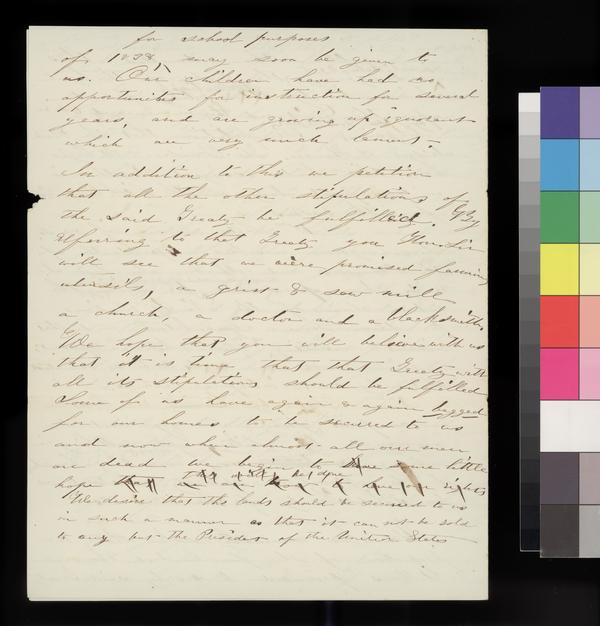 for school purposes
of 1838, may soon be given to
us. Our children have had no
opportunities for instruction for several
years, and are growing up ignorant
which we very much lament.
In addition to this we petition
that all the other stipulations of
the said Treaty be fulfilled.
referring to that Treaty you Hon. Sir
will see that we were promised farming
utensils, a grist & saw mill
a church, a doctor and a blacksmith.
We hope that you will believe with us
that it is time that that Treaty with
all its stipulations should be fulfilled
Some of us have again & again begged
for our homes to be secured to us
and now when almost all our men
are dead we begin to have some little
hope
We desire that the lands should be secured to us
in such a manner as that it can not be sold
to any but the Presidet of the United States